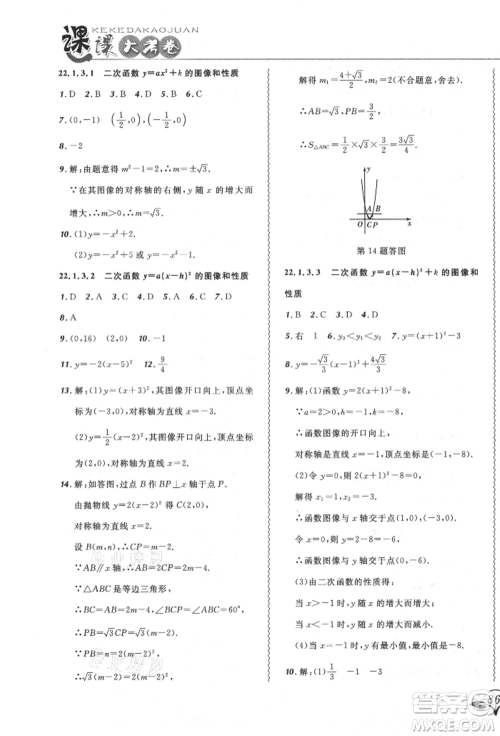 课课大考卷
KEKEDAKAOJUAN
22.1.3.1 二次函数 y=ax²+k 的图像和性质
1. D 2. D 3. B 4. D 5. B 6. C
7. (0,-1) (1/2,0) (-1/2,0)
8. -2
9. 解:由题意得 m²-1=2,∴m=±√3.
∵在其图像的对称轴的右侧,y 随 x 的增大
而增大,∴m>0.∴m=√3.
10. (1)y=-x²+2
(2)y=-x²-2.
22.1.3.2 二次函数 y=a(x-h)² 的图像和性质
1. D 2. D 3. B 4. D 5. B 6. D 7. C
8. A
9. (0,16) (2,0) 10. -1
11. y=-2(x-5)² 12. 9/4
13. 解:(1)y=(x+3)²,其图像开口向上,顶点
为(-3,0),对称轴为直线 x=-3.
(2)y=1/2(x-2)²,其图像开口向上,顶点坐标
为(2,0),对称轴为直线 x=2.
14. 解:如答图,点 B 作 BP⊥x 轴于点 P.
由抛物线 y=(x-2)² 得 C(2,0),
对称轴为直线 x=2.
设 B(m,n),∴CP=m-2.
∵AB∥x 轴,∴AB=2m-4.
∵△ABC 是等边三角形,
∴BC=AB=2m-4,∠BCP=∠ABC=60°.
∴PB=√3PC=√3(m-2).
∵PB=n=(m-2)²,
∴√3(m-2)=(m-2)².
解得 m₁=(4+√3)/2, m₂=2(不合题意,舍去).
∴AB=√3,BP=3/2.
∴S△ABC=1/2×√3×3/2=3√3/4.
y
A B
O C P x
第 14 题答图
22.1.3.3 二次函数 y=a(x-h)²+k 的图像和
性质
1. B 2. C 3. A 4. A
5. 右 1 6. y₃<y₂<y₁ 7. 0<a<3
8. y=-√3/3(x+1)²+4√3/3
9. 解:(1)函数图像 y=2(x+1)²-8,
∵a=2>0,h=-1,k=-8,
∴函数图像的开口向上,顶点为(-1,-8),
对称轴为直线 x=-1.
(2)令 y=0,则 2(x+1)²-8=0,
解得 x₁=1,x₂=-3.
∴函数图像与 x 轴交于点(1,0),(-3,0).
令 x=0,得 y=-6.
∴函数图像与 y 轴交于点(0,-6).
(3)由二次函数的性质得:
当 x>-1 时,y 随 x 的增大而增大,
当 x<-1 时,y 随 x 的增大而减小.
(4)当 x=-1 时,y 有最小值,最小值为-8.
10. 解:(1)1/3 -1 -3